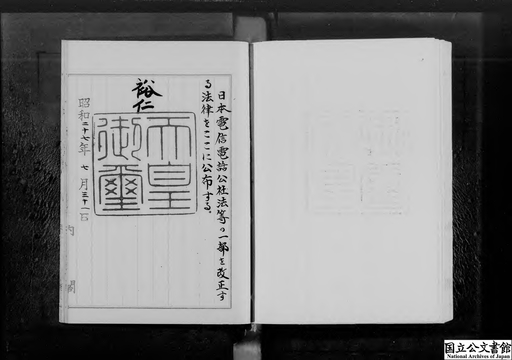 日本電信電話公社法等の一部を改正す
る法律をここに公布する。
裕仁
天皇
御璽
昭和二十七年七月三十一日
内閣
国立公文書館
National Archives of Japan